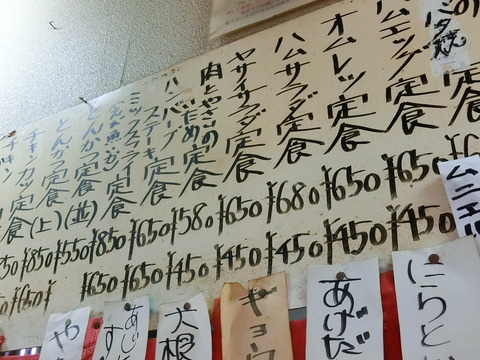 バタ焼
ハムエッグ定食
¥650
¥450
オムレツ定食
¥650
¥450
ハムサラダ定食
¥680
¥450
ヤサイサラダ定食
¥650
¥450
肉とやさいの
いため定食
¥580
¥450
ハンバーグ
ステーキ定食
¥650
¥450
ミックスフライ
定食
¥850
¥650
とんかつ定食(並)
¥550
¥650
とんかつ定食(上)
¥850
チキンカツ定食
¥850
¥650
チキン
ムニエル
にらと
あげだ
ギョウ
大根
や